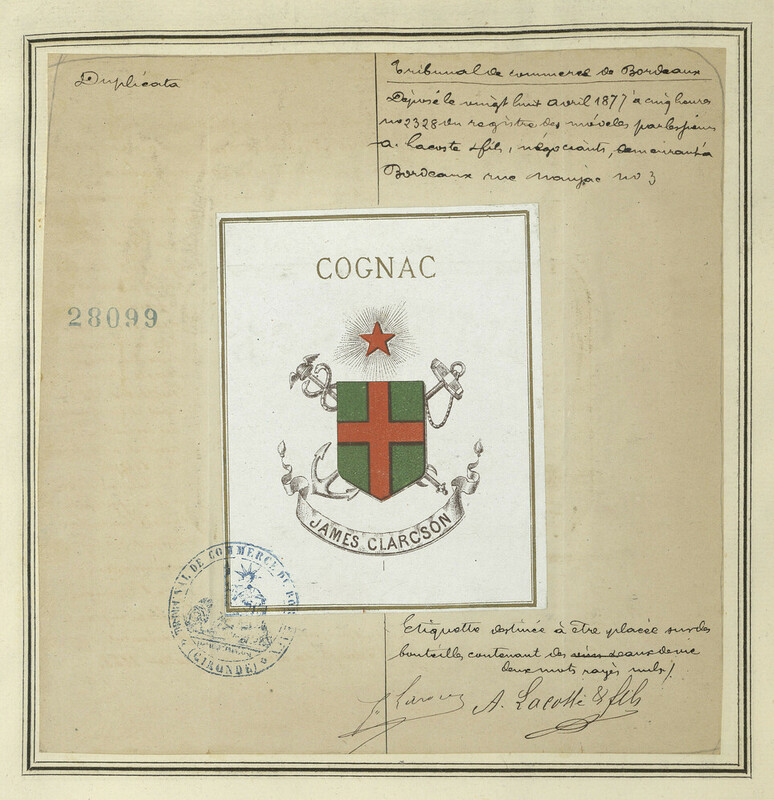 Duplicata
Tribunal de commerce de Bordeaux
Déposé le vingt huit avril 1877 à cinq heures
no 2328 du registre des modèles par les sieurs
A. Lacoste & fils, négociants, demeurant à
Bordeaux rue Naujac no 3
COGNAC
28099
JAMES CLARCSON
TRIBUNAL DE COMMERCE DE BO
(GIRONDE)
Etiquette destinée à être placée sur des
bouteilles contenant des eaux de vie
deux mots rayés nuls /.
A. Lacoste & fils